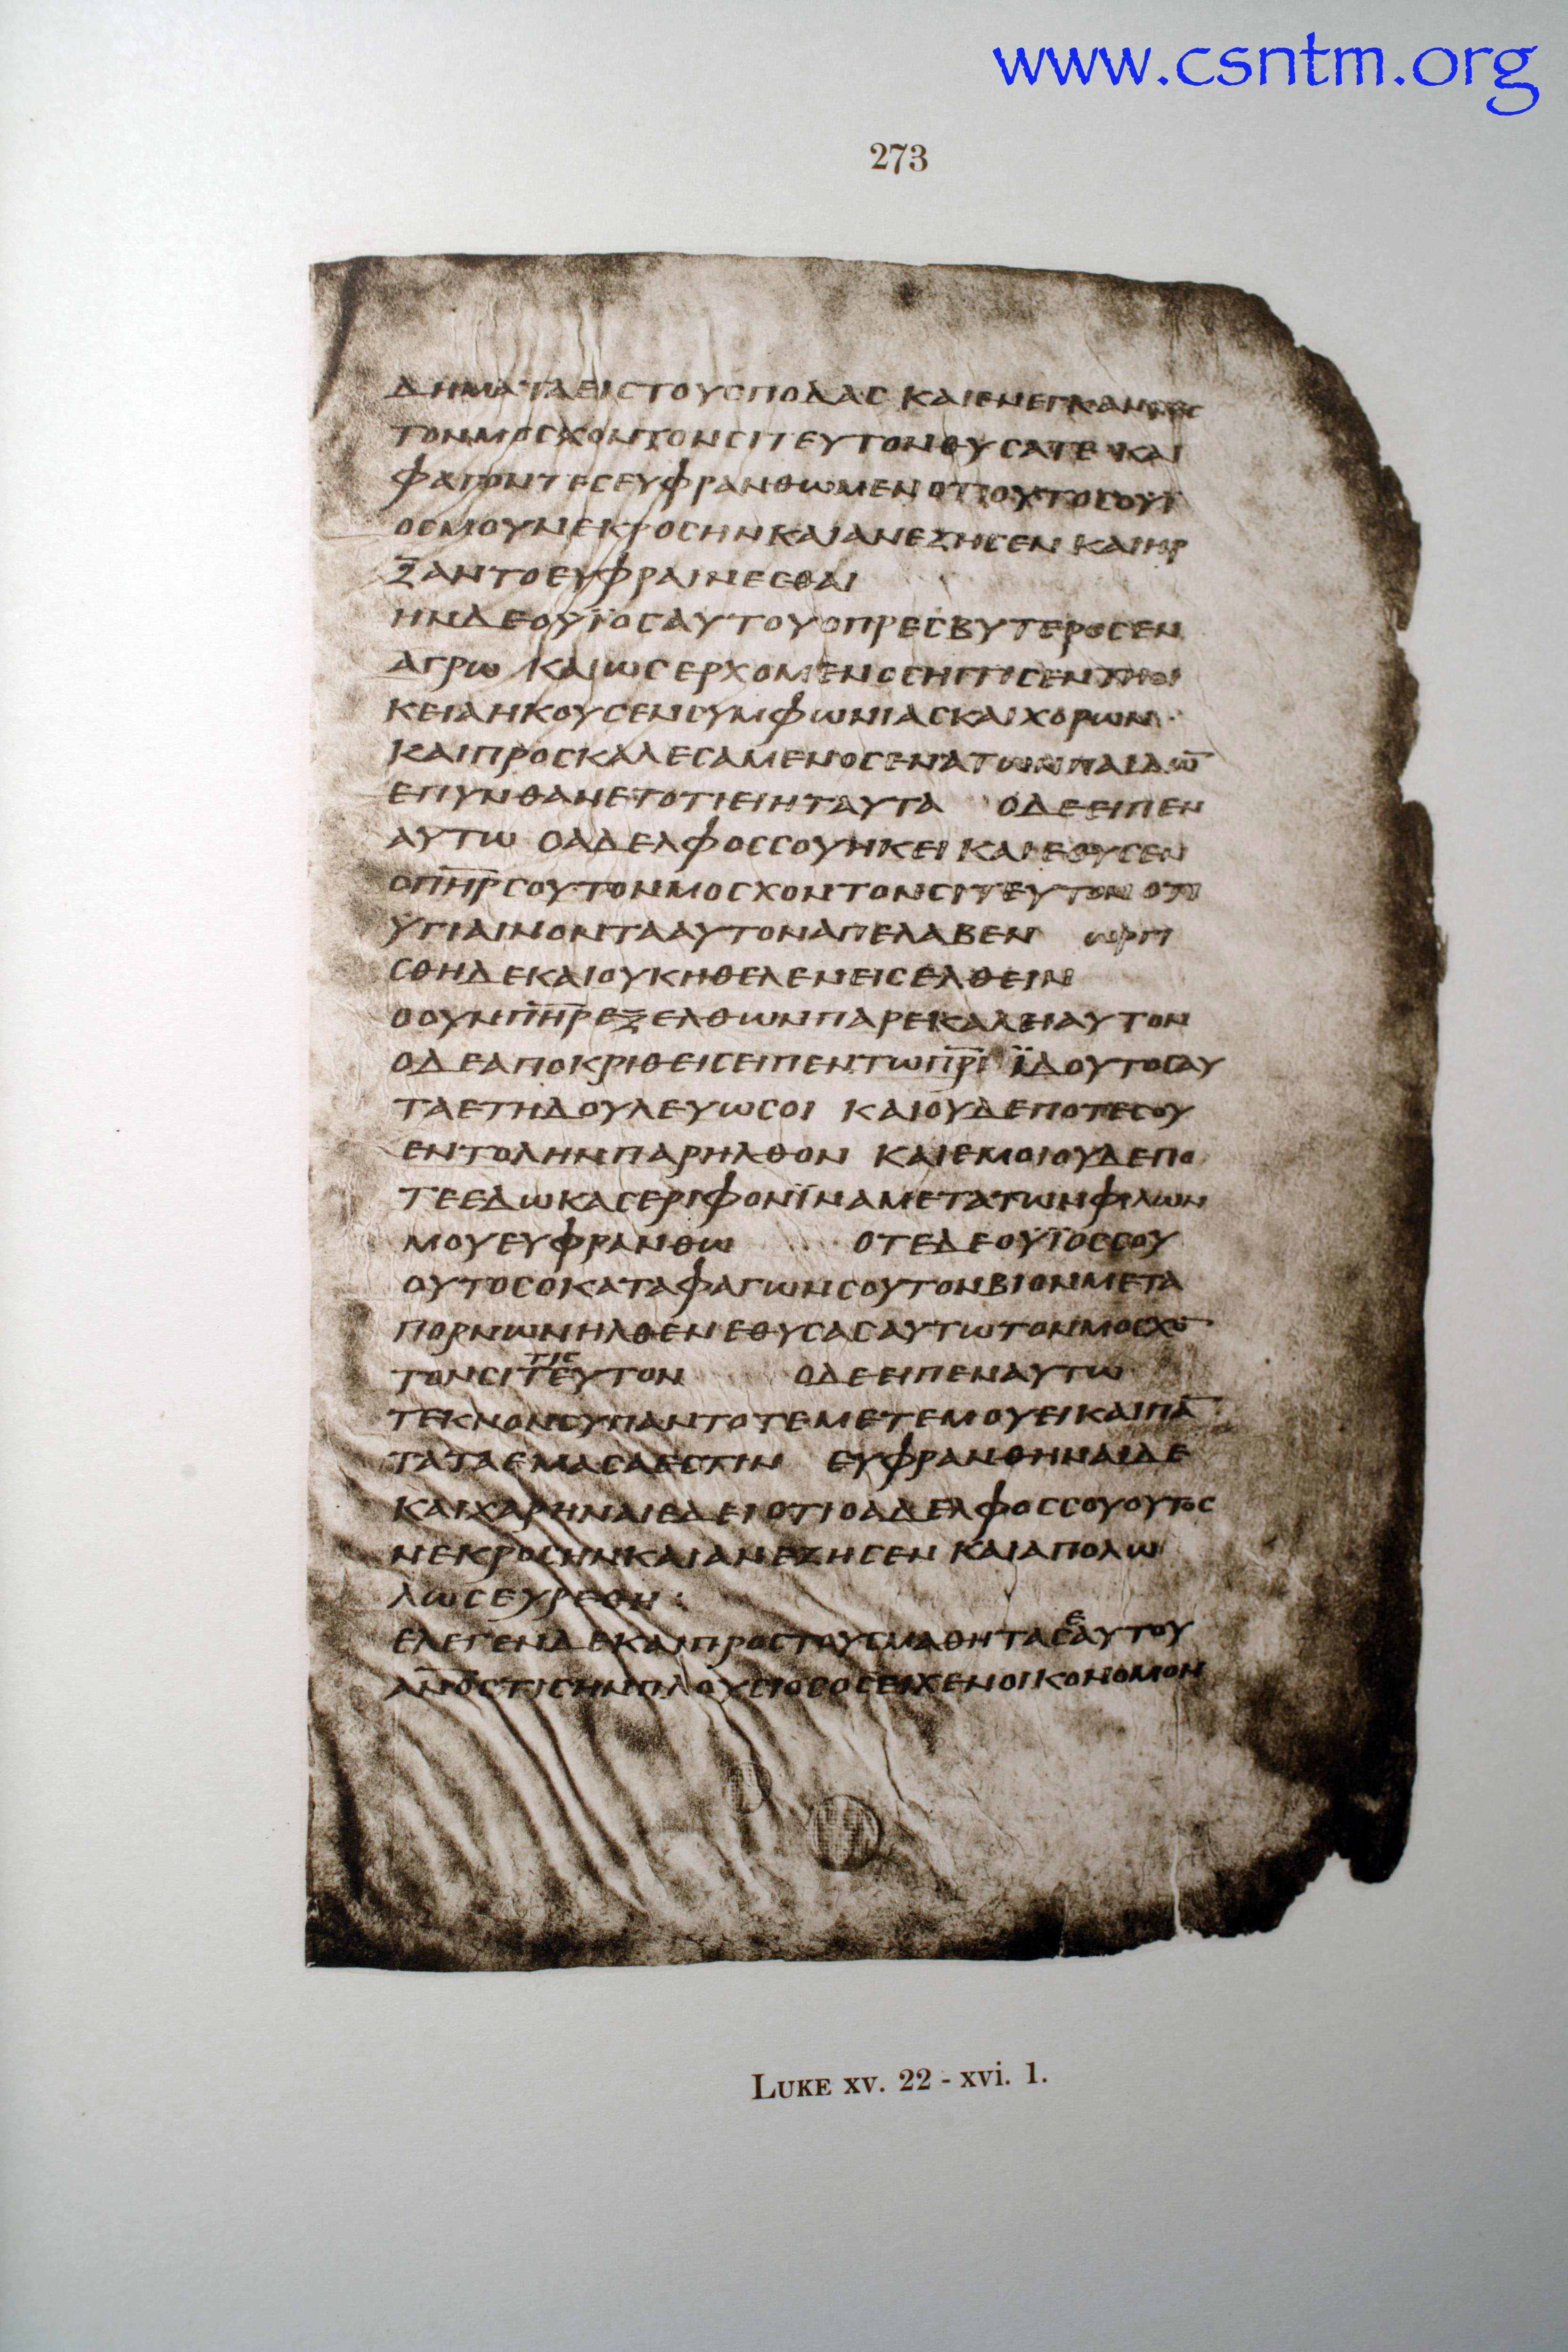 www.csntm.org
273
ΔΗΜΑΤΑΕΙCΤΟΥCΠΟΔΑC ΚΑΙΕΝΕΓΚΑΝΤΕC
ΤΟΝΜΟCΧΟΝΤΟΝCΙΤΕΥΤΟΝΘΥCΑΤΕ ΚΑΙ
ΦΑΓΟΝΤΕCΕΥΦΡΑΝΘΩΜΕΝΟΤΙΟΥΤΟCΟΥΙ
ΟCΜΟΥΝΕΚΡΟCΗΝΚΑΙΑΝΕΖΗCΕΝ ΚΑΙΗΡ
ΞΑΝΤΟΕΥΦΡΑΙΝΕCΘΑΙ
ΗΝΔΕΟΥΪΟCΑΥΤΟΥΟΠΡΕCΒΥΤΕΡΟCΕΝ
ΑΓΡΩ ΚΑΙΩCΕΡΧΟΜΕΝΟCΗΓΓΙCΕΝΤΗΟΙ
ΚΕΙΑΗΚΟΥCΕΝCΥΜΦΩΝΙΑCΚΑΙΧΟΡΩΝ·
ΚΑΙΠΡΟCΚΑΛΕCΑΜΕΝΟCΕΝΑΤΩΝΠΑΙΔΩ̅
ΕΠΥΝΘΑΝΕΤΟΤΙΕΙΗΤΑΥΤΑ ΟΔΕΕΙΠΕΝ
ΑΥΤΩ ΟΑΔΕΛΦΟCCΟΥΗΚΕΙ ΚΑΙΕΘΥCΕΝ
ΟΠ̅Η̅Ρ̅CΟΥΤΟΝΜΟCΧΟΝΤΟΝCΙΤΕΥΤΟΝ ΟΤΙ
ΫΓΙΑΙΝΟΝΤΑΑΥΤΟΝΑΠΕΛΑΒΕΝ ΩΡΓΙ
CΘΗΔΕΚΑΙΟΥΚΗΘΕΛΕΝΕΙCΕΛΘΕΙΝ
ΟΟΥΝΠ̅Η̅Ρ̅ΕΞΕΛΘΩΝΠΑΡΕΚΑΛΕΙΑΥΤΟΝ
ΟΔΕΑΠΟΚΡΙΘΕΙCΕΙΠΕΝΤΩΠ̅Ρ̅Ι̅ ΪΔΟΥΤΟCΑΥ
ΤΑΕΤΗΔΟΥΛΕΥΩCΟΙ ΚΑΙΟΥΔΕΠΟΤΕCΟΥ
ΕΝΤΟΛΗΝΠΑΡΗΛΘΟΝ ΚΑΙΕΜΟΙΟΥΔΕΠΟ
ΤΕΕΔΩΚΑCΕΡΙΦΟΝΪΝΑΜΕΤΑΤΩΝΦΙΛΩΝ
ΜΟΥΕΥΦΡΑΝΘΩ ΟΤΕΔΕΟΫΪΟCCΟΥ
ΟΥΤΟCΟΚΑΤΑΦΑΓΩΝCΟΥΤΟΝΒΙΟΝΜΕΤΑ
ΠΟΡΝΩΝΗΛΘΕΝΕΘΥCΑCΑΥΤΩΤΟΝΜΟCΧΟ̅
ΤΙC
ΤΟΝCΙΤΕΥΤΟΝ ΟΔΕΕΙΠΕΝΑΥΤΩ
ΤΕΚΝΟΝCΥΠΑΝΤΟΤΕΜΕΤΕΜΟΥΕΙΚΑΙΠΑ̅
ΤΑΤΑΕΜΑCΑΕCΤΙΝ ΕΥΦΡΑΝΘΗΝΑΙΔΕ
ΚΑΙΧΑΡΗΝΑΙΕΔΕΙΟΤΙΟΑΔΕΛΦΟCCΟΥΟΥΤΟC
ΝΕΚΡΟCΗΝΚΑΙΑΝΕΖΗCΕΝ ΚΑΙΑΠΟΛΩ
ΛΩCΕΥΡΕΘΗ:
Ε
ΕΛΕΓΕΝΔΕΚΑΙΠΡΟCΤΟΥCΜΑΘΗΤΑCΑΥΤΟΥ
ΑΝ̅Ο̅C̅ΤΙCΗΝΠΛΟΥCΙΟCΟCΕΙΧΕΝΟΙΚΟΝΟΜΟΝ
LUKE XV. 22 - xvi. 1.